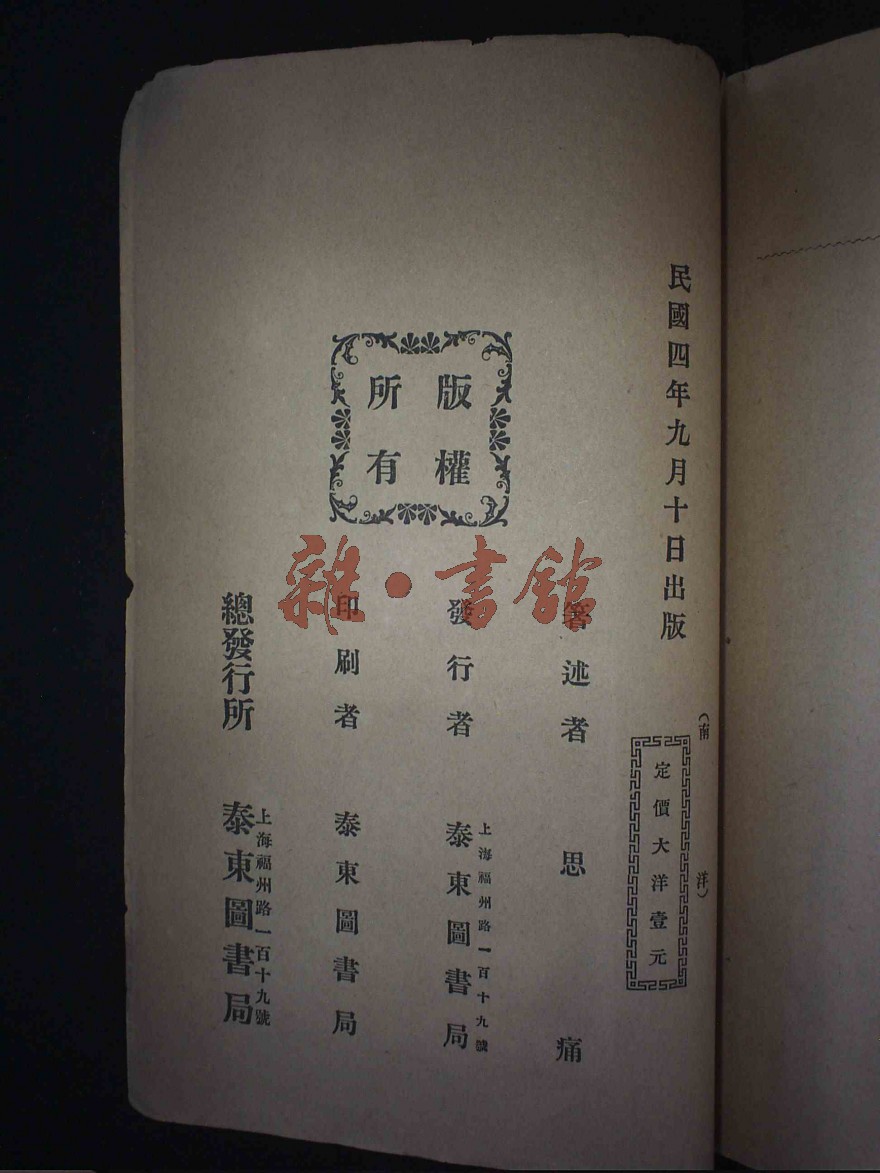 民國四年九月十日出版
(南洋)
定價大洋壹元
版權
所有
著述者 思痛
發行者 上海福州路一百十九號 泰東圖書局
印刷者 泰東圖書局
總發行所 上海福州路一百十九號 泰東圖書局
雜·書館